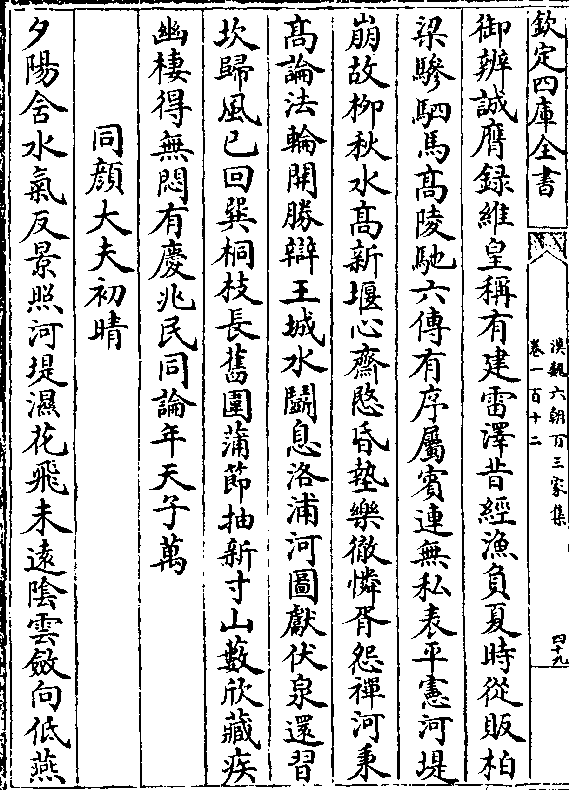 欽定四庫全書
漢魏六朝百三家集
卷一百十二
四十九
御辨誠膺錄維皇稱有建雷澤昔經漁負夏時從販柏
梁驂駟馬髙陵馳六傳有序屬賓連無私表平憲河堤
崩故柳秋水髙新堰心齋愍昏墊樂徹憐胥怨禪河秉
髙論法輪開勝辯王城水鬭息洛浦河圖獻伏泉還習
坎歸風已回巽桐枝長舊圍蒲節抽新寸山藪欣藏疾
幽棲得無悶有慶兆民同論年天子萬
同顔大夫初晴
夕陽含水氣反景照河堤濕花飛未逺陰雲斂向低燕